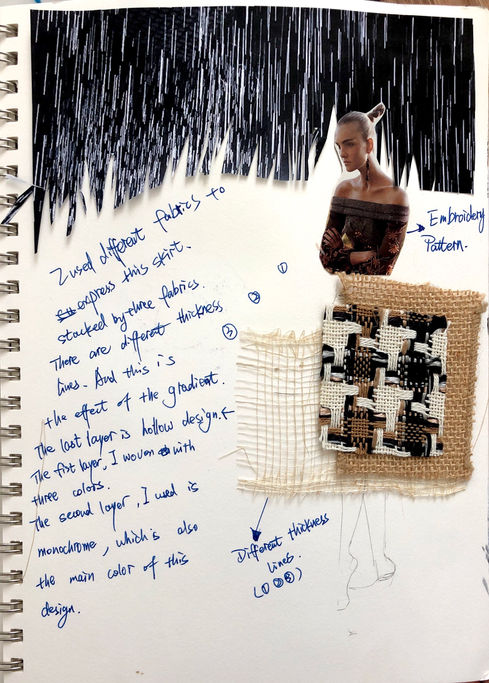 I used different fabrics to
express this skirt.
stacked by three fabrics.
There are different thickness
lines. And this is
the effect of the gradient.
The last layer is hollow design.
The fist layer, I woven with
three colors.
The second layer, I used is
monochrome, which is also
the main color of this
design.
①
②
③
Embroidery
Pattern.
Different thickness
lines.
(①②③)